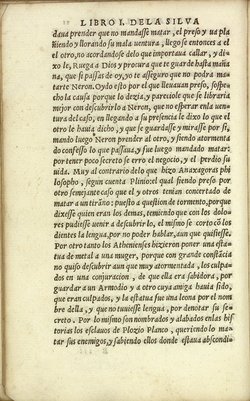 LIBRO I. DE LA SILVA
daua prender que no mandasse matar, el preso y ua pla
ñiendo y llorando su mala ventura, llego se entonces a el
otro, no acordandose delo que importaua callar, y di
xo le, Ruega a Dios y procura que te guarde hasta maña
na, que si passas de oy, yo te asseguro que no podra ma
tarte Neron. Oydo esto por el que lleuauan preso, sospe
cho la causa porque lo dezia, y pareciole que se libraria
mejor con descubrirlo a Neron, que no esperar en la ven
tura del caso, en llegando a su presencia le dixo lo que el
otro le hauia dicho, y que se guardasse y mirasse por si,
mando luego Neron prender al otro, y siendo atormenta
do confesso lo que passaua, y fue luego mandado matar:
por tener poco secreto se erro el negocio, y el perdio su
vida. Muy al contrario delo que hizo Anaxagoras phi
losopho, segun cuenta Plinio el qual siendo preso por
otro semejante caso que el y otros tenian concertado de
matar a un tirano: puesto a question de tormento, porque
dixesse quien eran los demas, temiendo que con los dolo
res pudiesse venir a descubrirlo, el mismo se corto cõ los
dientes la lengua, por no poder hablar, aun que quisiesse.
Por otro tanto los Athenienses hizieron poner una esta
tua de metal a una muger, porque con grande constãcia
no quiso descubrir aun que muy atormentada, los culpa
dos en una conjuracion, de que ella era sabidora, por
guardar a un Armodio y a otro cuya amiga hauia sido,
que eran culpados, y la estatua fue una leona por el nom
bre della, y que no tuuiesse lengua, por denotar su se-
creto. Por lo mismo son nombrados y alabados enlas his
torias los esclauos de Plozio Planco, queriendo lo ma
tar sus enemigos, y sabiendo ellos donde estaua abscondi